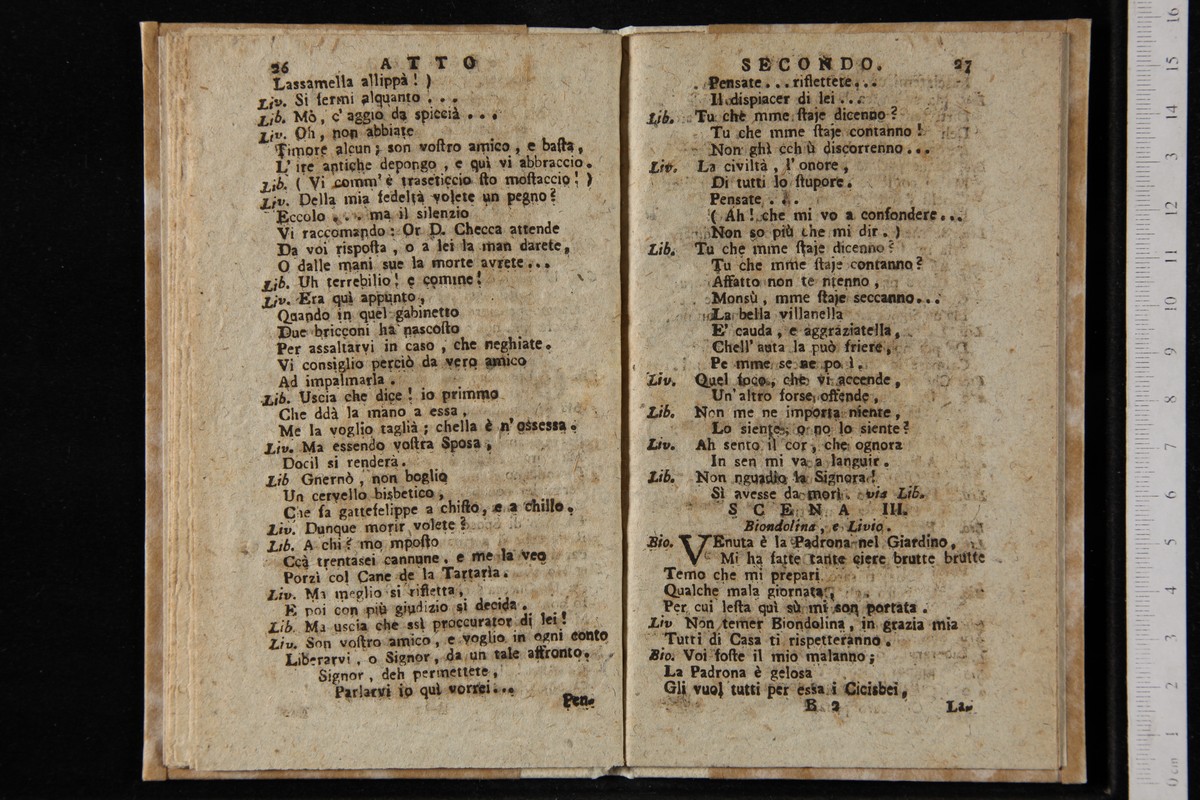 26 ATTO
Lassamella allippà! )
Liv. Si fermi alquanto ...
Lib. Mò, c'aggio da spiccià ...
Liv. Oh, non abbiate
Timore alcun; son vostro amico, e basta,
L'ire antiche depongo, e quì vi abbraccio.
Lib. ( Vi comm'è traseticcio sto mostaccio! )
Liv. Della mia fedeltà volete un pegno?
Eccolo ... ma il silenzio
Vi raccomando: Or D. Checca attende
Da voi risposta, o a lei la man darete,
O dalle mani sue la morte avrete...
Lib. Uh terrebilio! e comme!
Liv. Era quì appunto,
Quando in quel gabinetto
Due bricconi ha nascosto
Per assaltarvi in caso, che neghiate.
Vi consiglio perciò da vero amico
Ad impalmarla.
Lib. Uscia che dice! io primmo
Che ddà la mano a essa,
Me la voglio taglià; chella è n'ossessa.
Liv. Ma essendo vostra Sposa,
Docil si renderà.
Lib Gnernò, non boglio
Un cervello bisbetico,
Che fa gattefelippe a chisto, e a chillo.
Liv. Dunque morir volete?
Lib. A chi? mo mposto
Ccà trentasei cannune, e me la veo
Porzì col Cane de la Tartaria.
Liv. Ma meglio si rifletta,
E poi con più giudizio si decida.
Lib. Ma uscia che ssì proccurator di lei!
Liv. Son vostro amico, e voglio in ogni conto
Liberarvi, o Signor, da un tale affronto.
Signor, deh permettete,
Parlarvi io quì vorrei...
Pen-
SECONDO. 27
Pensate... riflettete...
Il dispiacer di lei...
Lib. Tu che mme staje dicenno?
Tu che mme staje contanno!
Non ghì cchiù discorrenno...
Liv. La civiltà, l'onore,
Di tutti lo stupore.
Pensate...
( Ah! che mi vo a confondere...
Non so più che mi dir. )
Lib. Tu che mme staje dicenno?
Tu che mme staje contanno?
Affatto non te ntenno,
Monsù, mme staje seccanno...
La bella villanella
E' cauda, e aggraziatella,
Chell'auta la può friere,
Pe mme se ne po ì.
Liv. Quel foco, che vi accende,
Un'altro forse offende,
Lib. Non me ne importa niente,
Lo siente, o no lo siente?
Liv. Ah sento il cor, che ognora
In sen mi va a languir.
Lib. Non nguadio la Signora!
Sì avesse da morì. via Lib.
SCENA III.
Biondolina, e Livio.
Bio. VEnuta è la Padrona nel Giardino,
Mi ha fatte tante ciere brutte brutte
Temo che mi prepari
Qualche mala giornata,
Per cui lesta quì sù mi son portata.
Liv Non temer Biondolina, in grazia mia
Tutti di Casa ti rispetteranno.
Bio. Voi foste il mio malanno;
La Padrona è gelosa
Gli vuol tutti per essa i Cicisbei,
B 2 La-